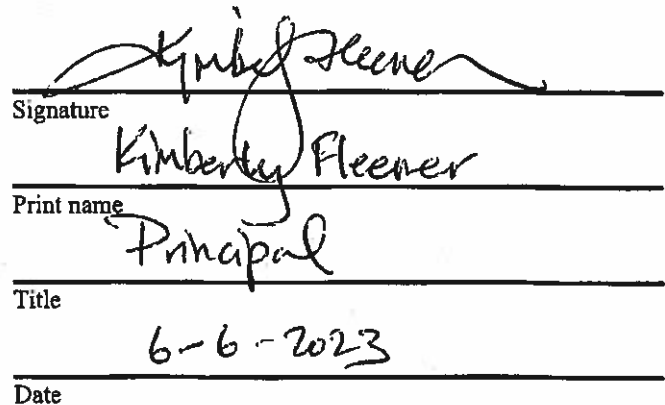 Kimberly Fleener
Signature
Kimberly Fleener
Print name
Principal
Title
6-6-2023
Date